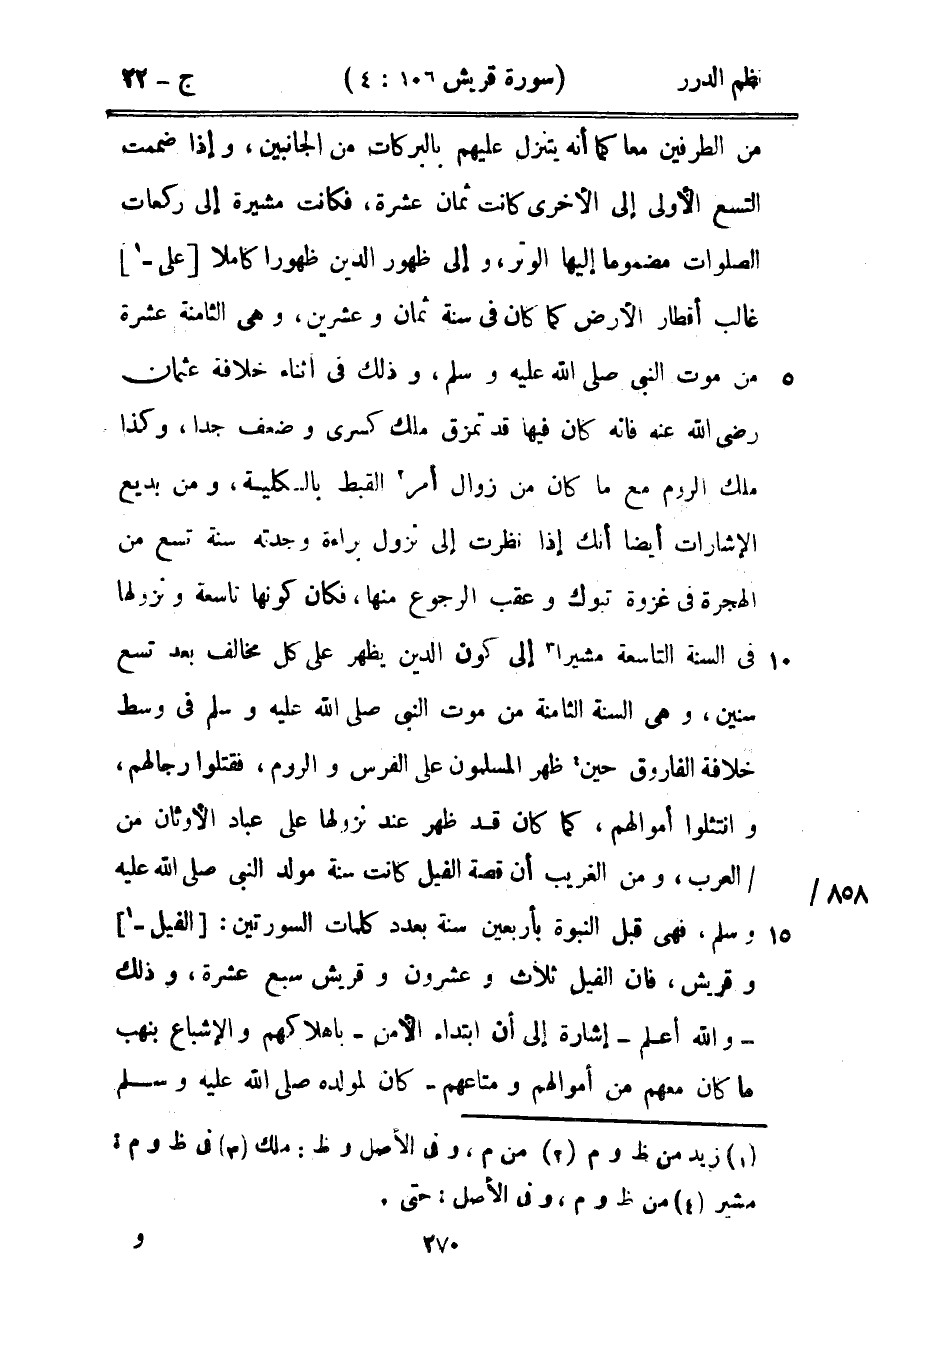 نظم الدرر (سورة قريش ١٠٦ : ٤) ج - ٢٢
من الطرفين معا كما أنه يتنزل عليهم بالبركات من الجانبين، و إذا ضممت
التسع الأولى إلى الأخرى كانت ثمان عشرة، فكانت مشيرة إلى ركعات
الصلوات مضموما إليها الوتر، و إلى ظهور الدين ظهورا كاملا [على -١]
غالب أقطار الأرض كما كان فى سنة ثمان و عشرين، و هى الثامنة عشرة
٥ من موت النبى صلى الله عليه و سلم، و ذلك فى أثناء خلافة عثمان
رضى الله عنه فانه كان فيها قد تمزق ملك كسرى و ضعف جدا، وكذا
ملك الروم مع ما كان من زوال أمر٢ القبط بالكلية، و من بديع
الإشارات أيضا أنك إذا نظرت إلى نزول براءة وجدته سنة تسع من
الهجرة فى غزوة تبوك و عقب الرجوع منها، فكان كونها تاسعة و نزولها
١٠ فى السنة التاسعة مشيرا٣ إلى كون الدين يظهر على كل مخالف بعد تسع
سنين، و هى السنة الثامنة من موت النبى صلى الله عليه و سلم فى وسط
خلافة الفاروق حين٤ ظهر المسلمون على الفرس و الروم، فقتلوا رجالهم،
و انتثلوا أموالهم، كما كان قد ظهر عند نزولها على عباد الأوثان من
/ العرب، و من الغريب أن قصة الفيل كانت سنة مولد النبى صلى الله عليه / ٨٥٨
١٥ و سلم، فهى قبل النبوة بأربعين سنة بعدد كلمات السورتين: [الفيل -١]
و قريش، فان الفيل ثلاث و عشرون و قريش سبع عشرة، و ذلك
- و الله أعلم - إشارة إلى أن ابتداء الأمن - باهلاكهم و الإشباع بنهب
ما كان معهم من أموالهم و متاعهم - كان لمولده صلى الله عليه و سلم
(١) زيد من ظ و م (٢) من م، و فى الأصل و ظ: ملك (٣) فى ظ و م:
مشير (٤) من ظ و م، و فى الأصل: حتى.
٢٧٠ و